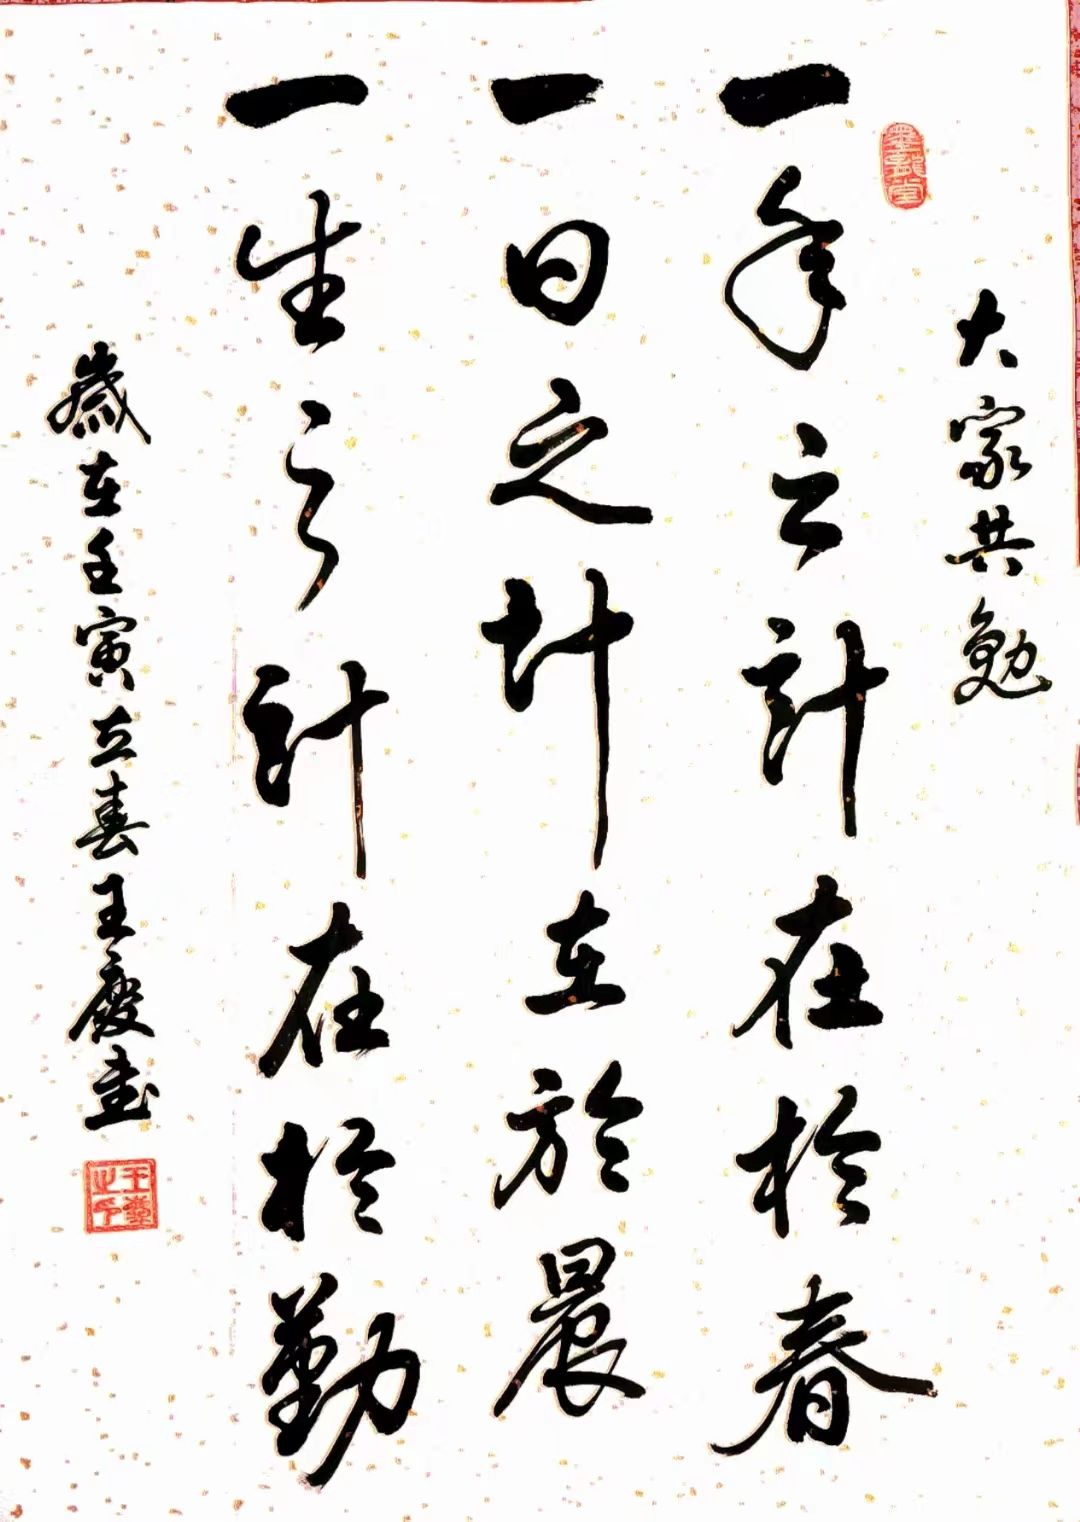 大家共勉
一年之計在於春
一日之計在於晨
一生之計在於勤
歲在壬寅立春王慶書